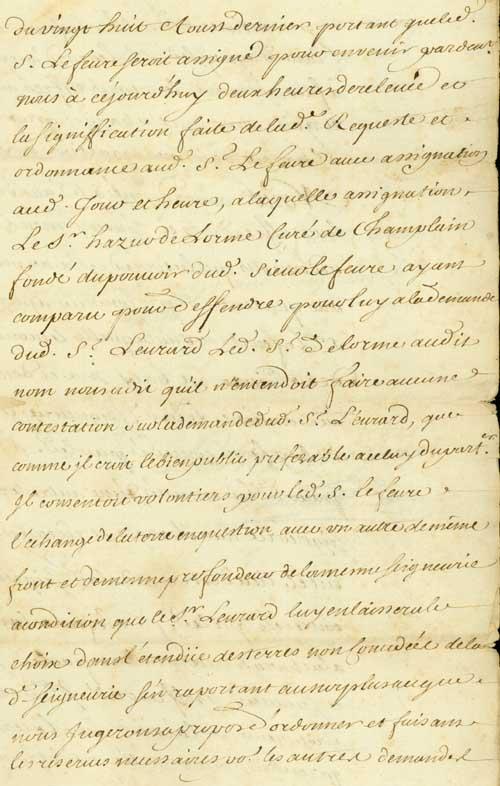 du vingt huit Aoust dernier portant que led.
S. Lefevre seroit assigné pour en venir par devt
nous à ce jourd'huy deux heures de relevée et
la signiffication faite de lad.e Requeste et
ordonnance aud. S.r Lefevre avec assignation
aud. Jour et heure, a laquelle assignation
Le S.r hazur de Lorme Curé de Champlain
fondé du pouvoir dud. Sieur lefevre ayant
comparu pour deffendre pour luy a la demande
dud. S.r Levrard Led. S.r Delorme audit
nom nous a dit quil n'entendoit faire aucune
contestation sur la demande dud. S.r Levrard, que
comme jl croit le bien public preferable a celuy du part.er
Jl consentoit volontiers pour led. S. lefevre
l'echange de la terre en question avec un autre de même
front et de mesme profondeur de la mesme seigneurie
a condition que le S.r Levrard luy en laissera le
choix dans l'étendüe des terres non concedées de la
d.e seigneurie s'en raportant au surplus a ce que
nous Jugerons a propos d'ordonner et faisant
les reserves necessaires les autres demandes